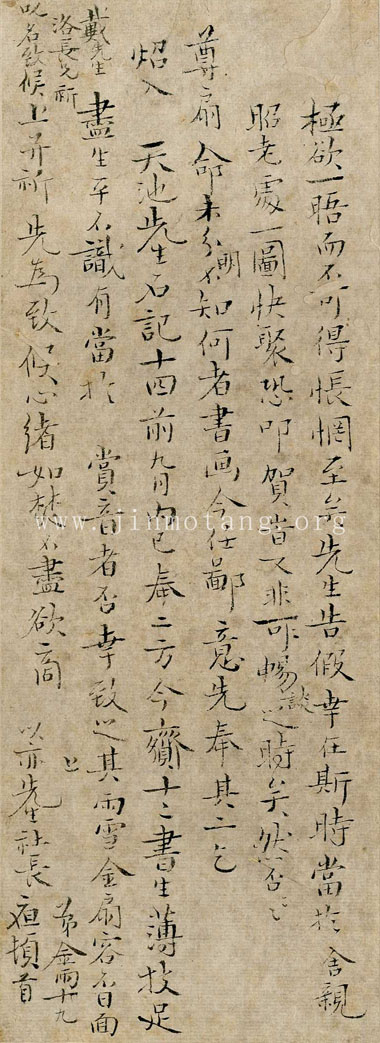 極欲一晤而不可得悵惘至矣先生告假幸在斯時當於 舍親
照老處一圖快聚恐叩賀皆又非可暢談之時矣然否否
尊扇 命未分明不知何者書画今任鄙意先奉其二乞
炤入 天池先生石記十四前九月內已奉二方今齎十二書生薄技足
盡生平不識有當於 賞音者否幸致之其雨雪金扇容另日面
上并祈 先為致候心緒如焚不盡欲商 上 以亦先生社長
戴先生
洛長兄祈
叱名致候
弟金 十九
夜頓首
www.jinmotang.org